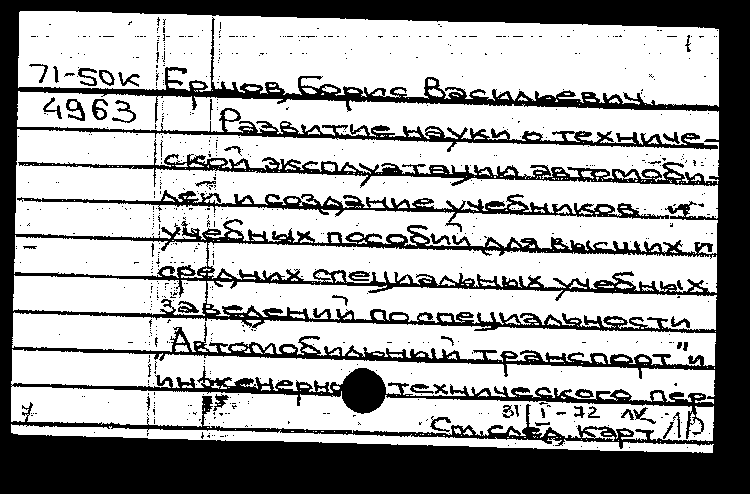 1
71-50к Ершов, Борис Васильевич.
4963 Развитие науки о техниче-
ской эксплуатации автомоби-
лей и создание учебников и
учебных пособий для высших и
средних специальных учебных
заведений по специальности
„Автомобильный транспорт" и
инженерно технического пер-
31/I-72 ЛК
См. след. карт.